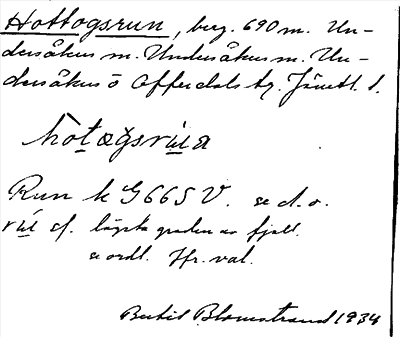 Hottogsrun, berg. 690 m. Un-
dersåkers m. Undersåkers m. Un-
dersåkers o Offerdals tg. Jämtl. l.
Run k G665V. se d. o.
cf. lägsta graden av fjäll.
se ordl. Jfr. val.
Bertil Blomstrand 1934